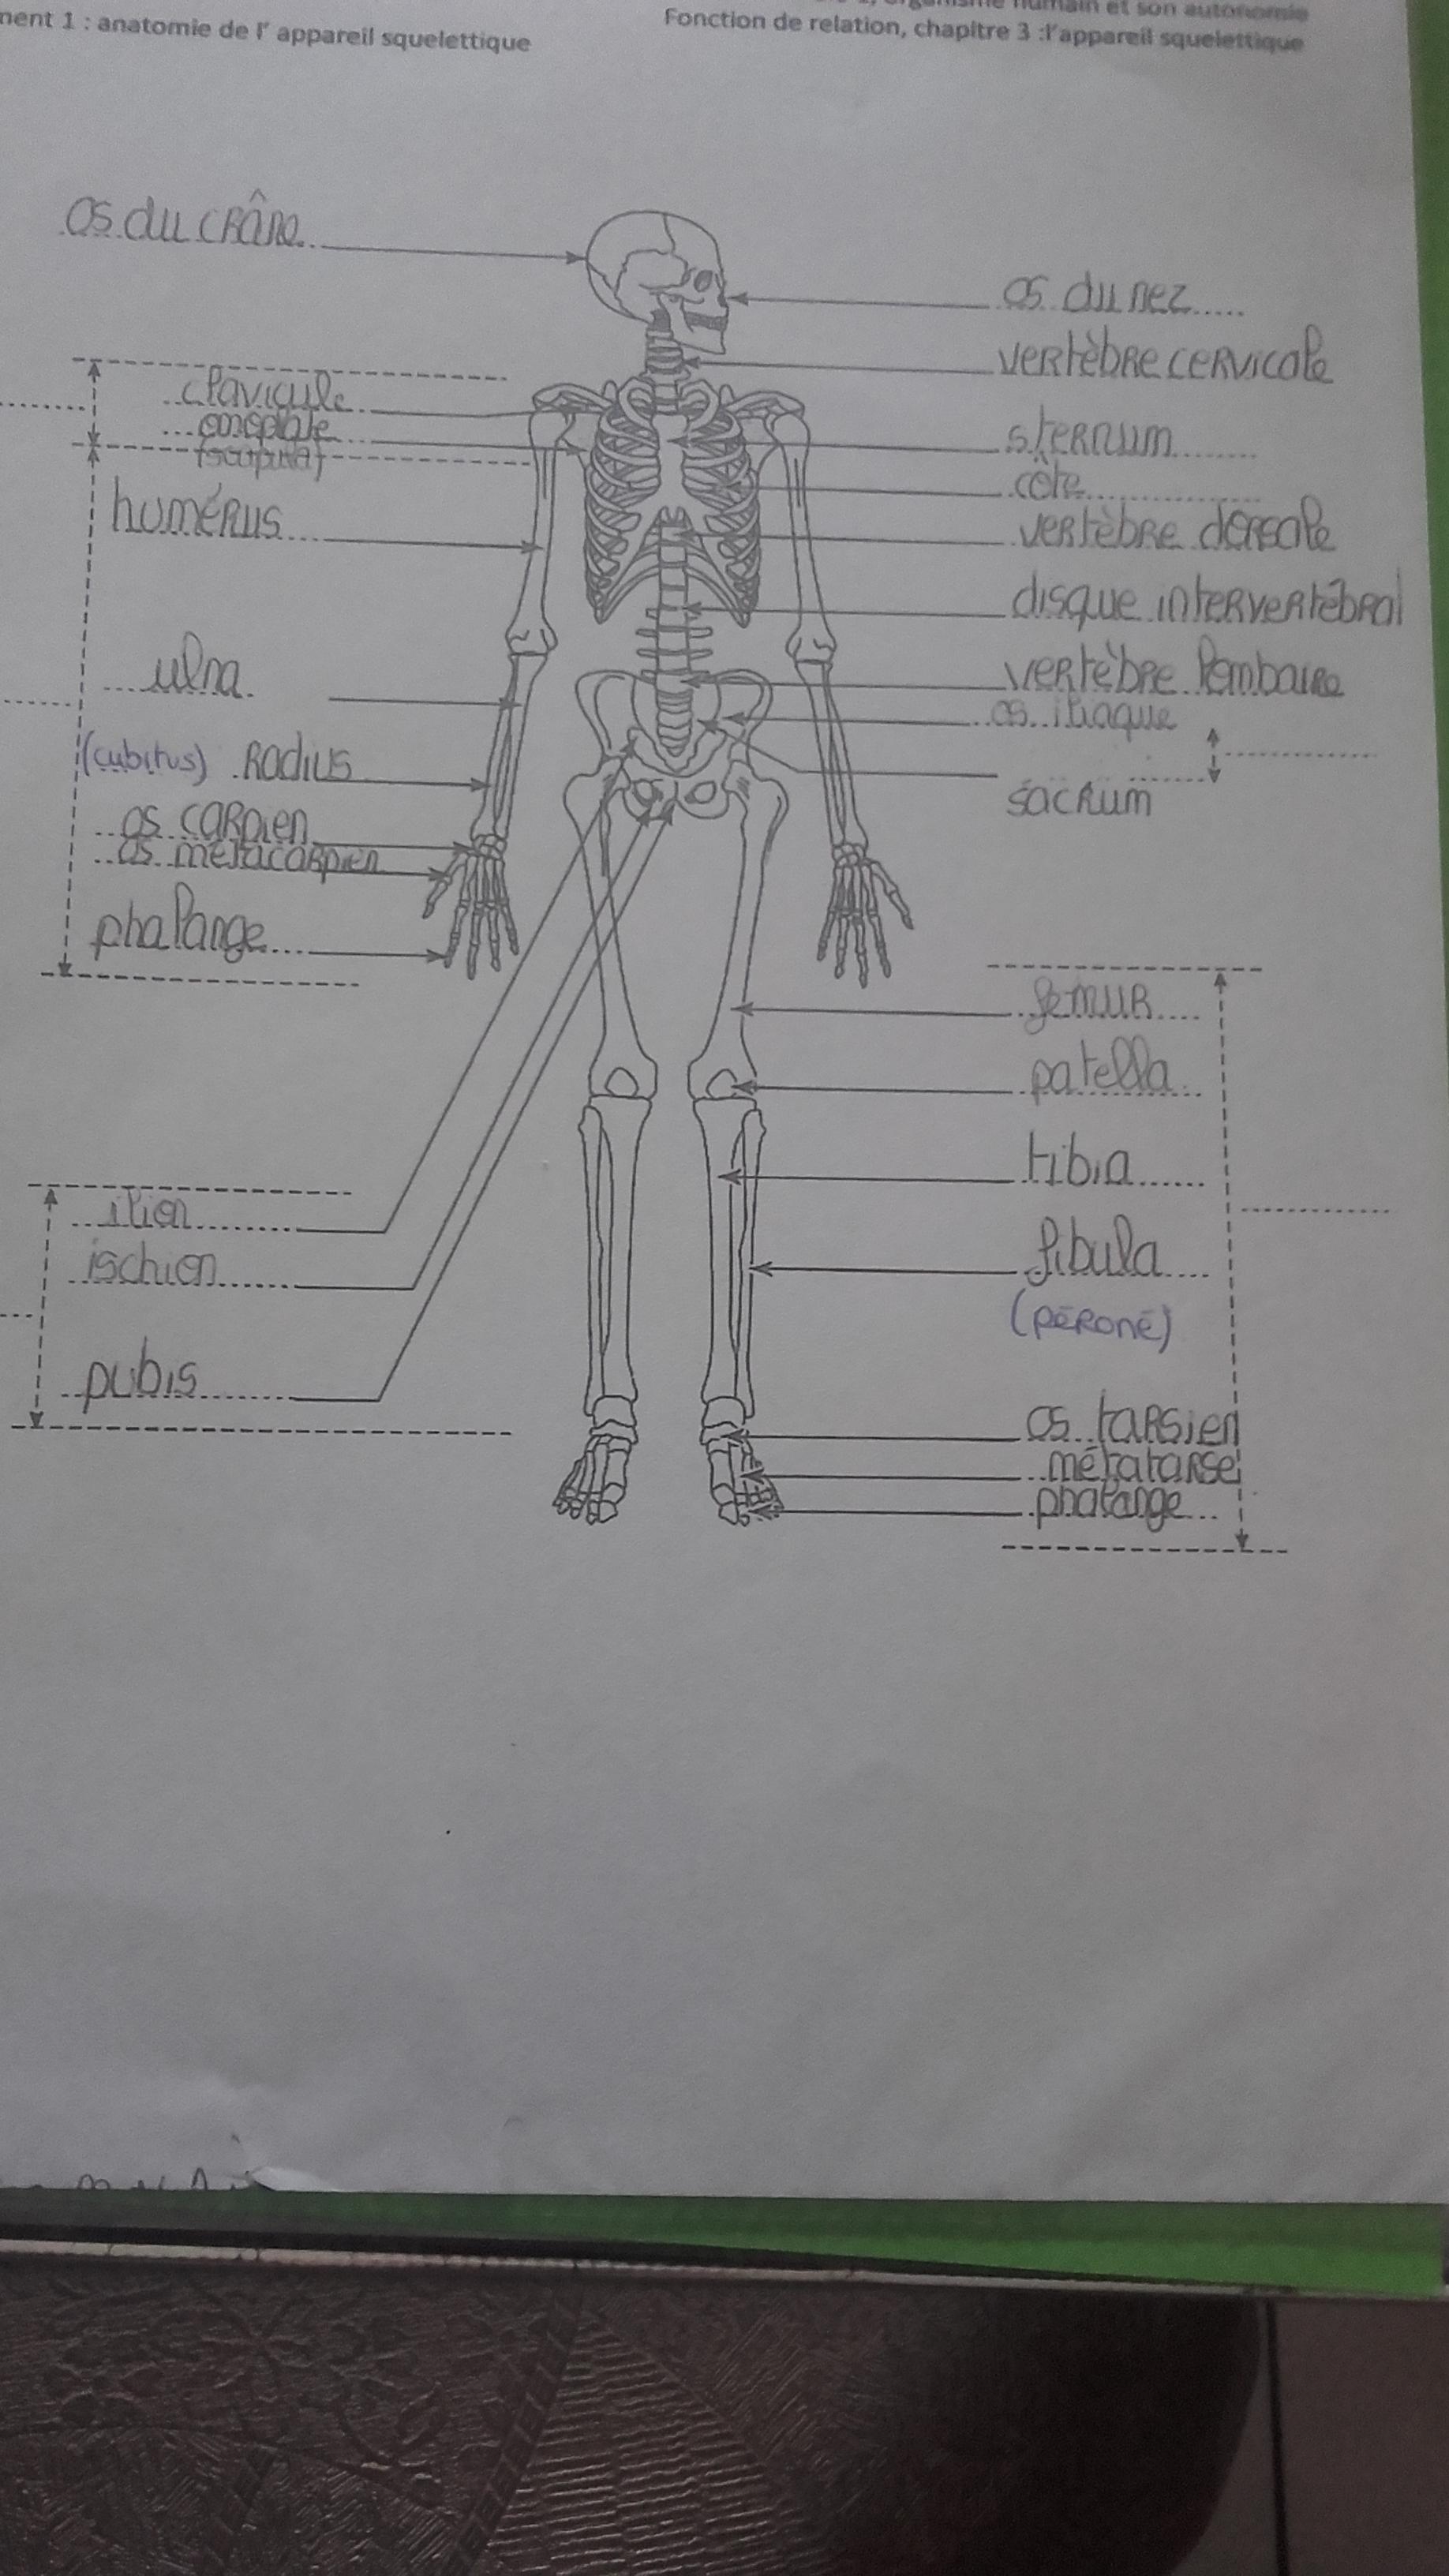 nent 1 : anatomie de l' appareil squelettique
organisme humain et son autonomie
Fonction de relation, chapitre 3 :l'appareil squelettique
os du crâne
os du nez
vertèbre cervicale
clavicule
omoplate
(scapula)
sternum
côte
humérus
vertèbre dorsale
disque intervertébral
ulna
vertèbre lombaire
os iliaque
(cubitus) Radius
sacrum
os carpien
os métacarpien
phalange
femur
patella
tibia
ilion
ischion
fibula
(péroné)
pubis
os tarsien
métatarse
phalange